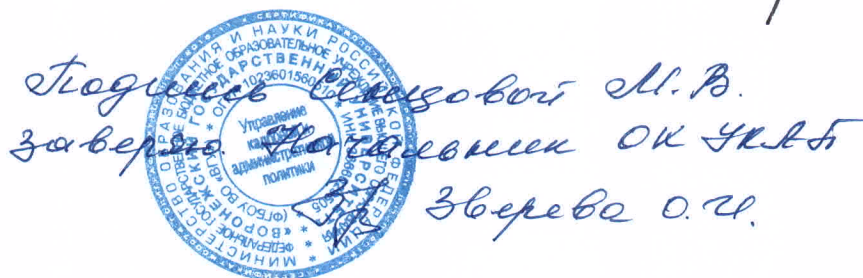 Подпись Семцовой М.В.
заверяю Начальник ОК УКАП
Зверева О.И.
МИНИСТЕРСТВО ОБРАЗОВАНИЯ И НАУКИ РОССИЙСКОЙ ФЕДЕРАЦИИ
ФЕДЕРАЛЬНОЕ ГОСУДАРСТВЕННОЕ БЮДЖЕТНОЕ ОБРАЗОВАТЕЛЬНОЕ УЧРЕЖДЕНИЕ
«ВОРОНЕЖСКИЙ ГОСУДАРСТВЕННЫЙ
(ФГБОУ ВО «ВГУ»)
Управление
административной
политики